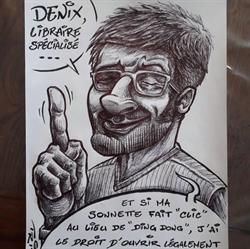 DENIX,
LIBRAIRE
SPÉCIALISÉ
...
ET SI MA
SONNETTE FAIT "CLIC"
AU LIEU DE "DING DONG", J'AI
LE DROIT D'OUVRIR LÉGALEMENT